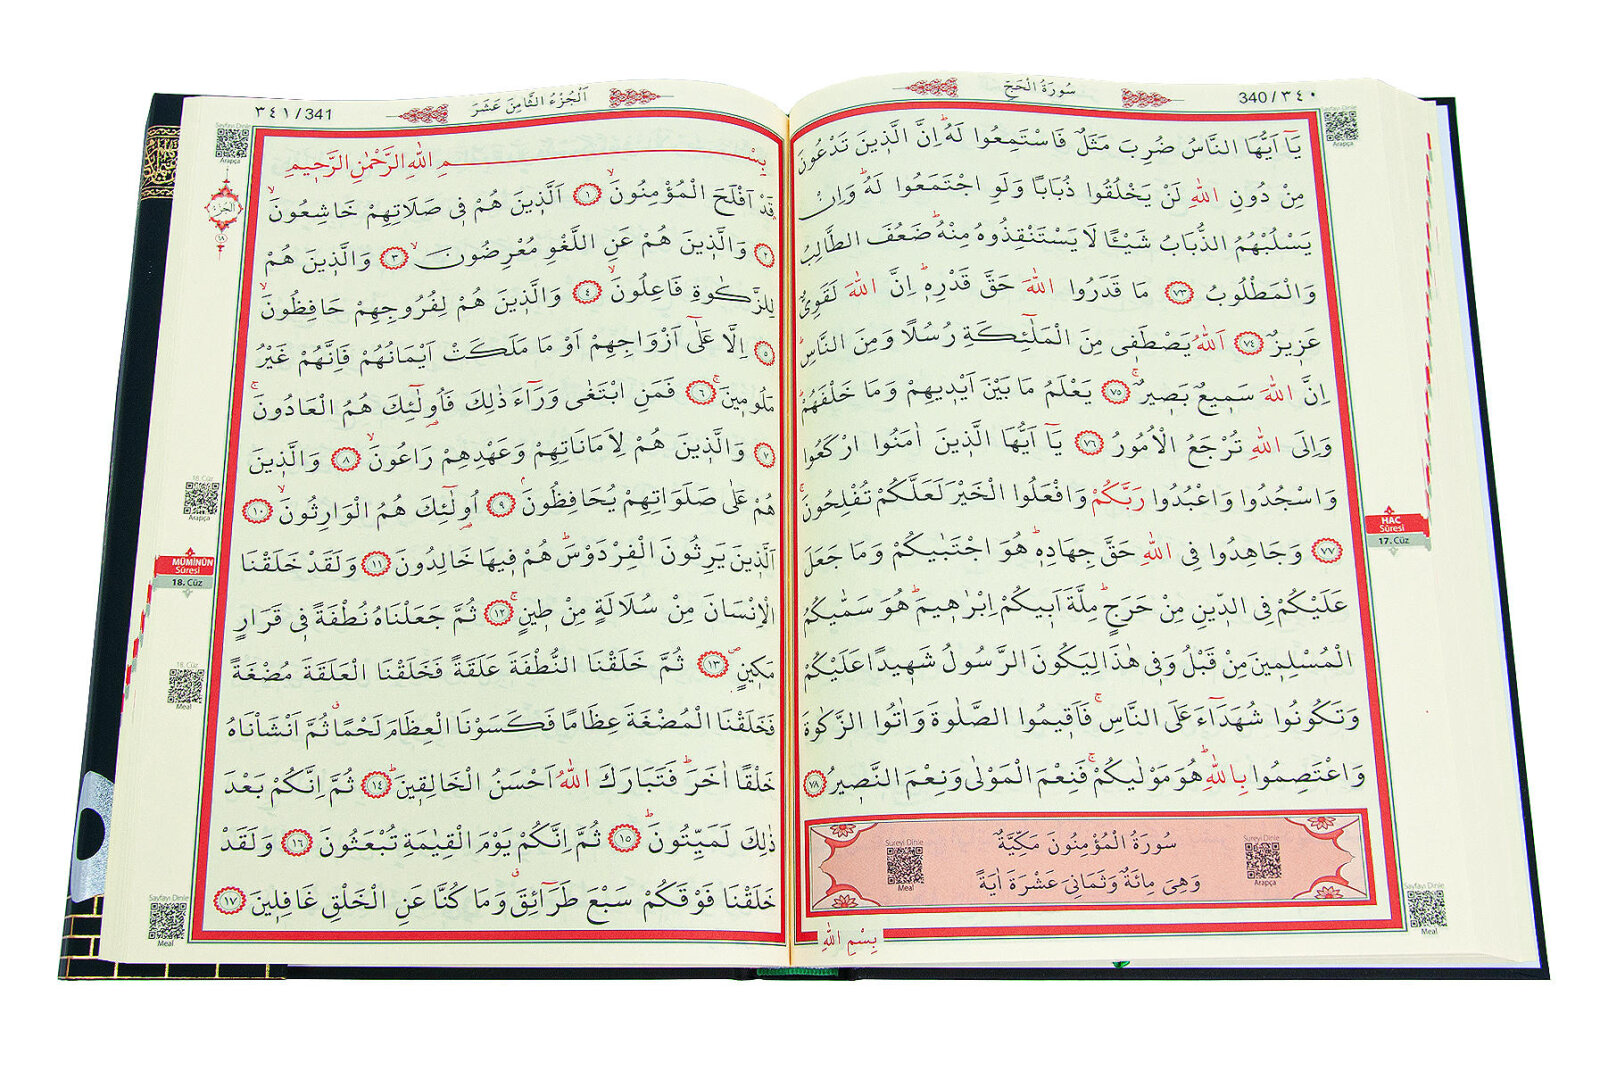 340 / ٣٤٠
سُورَةُ الْحَجِّ
يَٓا اَيُّهَا النَّاسُ ضُرِبَ مَثَلٌ فَاسْتَمِعُوا لَهُۜ اِنَّ الَّذٖينَ تَدْعُونَ
مِنْ دُونِ اللّٰهِ لَنْ يَخْلُقُوا ذُبَابًا وَلَوِ اجْتَمَعُوا لَهُۜ وَاِنْ
يَسْلُبْهُمُ الذُّبَابُ شَيْـًٔا لَا يَسْتَنْقِذُوهُ مِنْهُۜ ضَعُفَ الطَّالِبُ
وَالْمَطْلُوبُ ﴿٧٣﴾ مَا قَدَرُوا اللّٰهَ حَقَّ قَدْرِهٖۜ اِنَّ اللّٰهَ لَقَوِيٌّ
عَزٖيزٌ ﴿٧٤﴾ اَللّٰهُ يَصْطَفٖي مِنَ الْمَلٰٓئِكَةِ رُسُلًا وَمِنَ النَّاسِۜ
اِنَّ اللّٰهَ سَمٖيعٌ بَصٖيرٌۚ ﴿٧٥﴾ يَعْلَمُ مَا بَيْنَ اَيْدٖيهِمْ وَمَا خَلْفَهُمْۜ
وَاِلَى اللّٰهِ تُرْجَعُ الْاُمُورُ ﴿٧٦﴾ يَٓا اَيُّهَا الَّذٖينَ اٰمَنُوا ارْكَعُوا
وَاسْجُدُوا وَاعْبُدُوا رَبَّكُمْ وَافْعَلُوا الْخَيْرَ لَعَلَّكُمْ تُفْلِحُونَۚ
﴿٧٧﴾ وَجَاهِدُوا فِي اللّٰهِ حَقَّ جِهَادِهٖۜ هُوَ اجْتَبٰيكُمْ وَمَا جَعَلَ
عَلَيْكُمْ فِي الدّٖينِ مِنْ حَرَجٍۜ مِلَّةَ اَبٖيكُمْ اِبْرٰهٖيمَۜ هُوَ سَمّٰيكُمُ
الْمُسْلِمٖينَ مِنْ قَبْلُ وَفٖي هٰذَا لِيَكُونَ الرَّسُولُ شَهٖيدًا عَلَيْكُمْ
وَتَكُونُوا شُهَدَٓاءَ عَلَى النَّاسِۚ فَاَقٖيمُوا الصَّلٰوةَ وَاٰتُوا الزَّكٰوةَ
وَاعْتَصِمُوا بِاللّٰهِۜ هُوَ مَوْلٰيكُمْۚ فَنِعْمَ الْمَوْلٰى وَنِعْمَ النَّصٖيرُ ﴿٧٨﴾
سُورَةُ الْمُؤْمِنُونَ مَكِّيَّةٌ
وَهِيَ مِائَةٌ وَثَمَانِيَ عَشْرَةَ اٰيَةً
Sureyi Dinle
Arapça
Sureyi Dinle
Meal
بِسْمِ اللّٰهِ
Sayfayı Dinle
Arapça
HAC
Sûresi
17. Cüz
Sayfayı Dinle
Meal
اَلْجُزْءُ الثَّامِنَ عَشَرَ
٣٤١ / 341
بِسْمِ اللّٰهِ الرَّحْمٰنِ الرَّحٖيمِ
قَدْ اَفْلَحَ الْمُؤْمِنُونَۙ ﴿١﴾ اَلَّذٖينَ هُمْ فٖي صَلَاتِهِمْ خَاشِعُونَۙ
﴿٢﴾ وَالَّذٖينَ هُمْ عَنِ اللَّغْوِ مُعْرِضُونَۙ ﴿٣﴾ وَالَّذٖينَ هُمْ
لِلزَّكٰوةِ فَاعِلُونَۙ ﴿٤﴾ وَالَّذٖينَ هُمْ لِفُرُوجِهِمْ حَافِظُونَۙ
﴿٥﴾ اِلَّا عَلٰٓى اَزْوَاجِهِمْ اَوْ مَا مَلَكَتْ اَيْمَانُهُمْ فَاِنَّهُمْ غَيْرُ
مَلُومٖينَۚ ﴿٦﴾ فَمَنِ ابْتَغٰى وَرَٓاءَ ذٰلِكَ فَاُو۬لٰٓئِكَ هُمُ الْعَادُونَۚ
﴿٧﴾ وَالَّذٖينَ هُمْ لِاَمَانَاتِهِمْ وَعَهْدِهِمْ رَاعُونَۙ ﴿٨﴾ وَالَّذٖينَ
هُمْ عَلٰى صَلَوَاتِهِمْ يُحَافِظُونَۘ ﴿٩﴾ اُو۬لٰٓئِكَ هُمُ الْوَارِثُونَۙ ﴿١٠﴾
اَلَّذٖينَ يَرِثُونَ الْفِرْدَوْسَۜ هُمْ فٖيهَا خَالِدُونَ ﴿١١﴾ وَلَقَدْ خَلَقْنَا
الْاِنْسَانَ مِنْ سُلَالَةٍ مِنْ طٖينٍۚ ﴿١٢﴾ ثُمَّ جَعَلْنَاهُ نُطْفَةً فٖي قَرَارٍ
مَكٖينٍۖ ﴿١٣﴾ ثُمَّ خَلَقْنَا النُّطْفَةَ عَلَقَةً فَخَلَقْنَا الْعَلَقَةَ مُضْغَةً
فَخَلَقْنَا الْمُضْغَةَ عِظَامًا فَكَسَوْنَا الْعِظَامَ لَحْمًاࣗ ثُمَّ اَنْشَأْنَاهُ
خَلْقًا اٰخَرَۜ فَتَبَارَكَ اللّٰهُ اَحْسَنُ الْخَالِقٖينَۜ ﴿١٤﴾ ثُمَّ اِنَّكُمْ بَعْدَ
ذٰلِكَ لَمَيِّتُونَۜ ﴿١٥﴾ ثُمَّ اِنَّكُمْ يَوْمَ الْقِيٰمَةِ تُبْعَثُونَ ﴿١٦﴾ وَلَقَدْ
خَلَقْنَا فَوْقَكُمْ سَبْعَ طَرَٓائِقَࣗ وَمَا كُنَّا عَنِ الْخَلْقِ غَافِلٖينَ ﴿١٧﴾
Sayfayı Dinle
Arapça
الجزء
١٨
18. Cüz
Arapça
MÜMİNÜN
Sûresi
18. Cüz
18. Cüz
Meal
Sayfayı Dinle
Meal